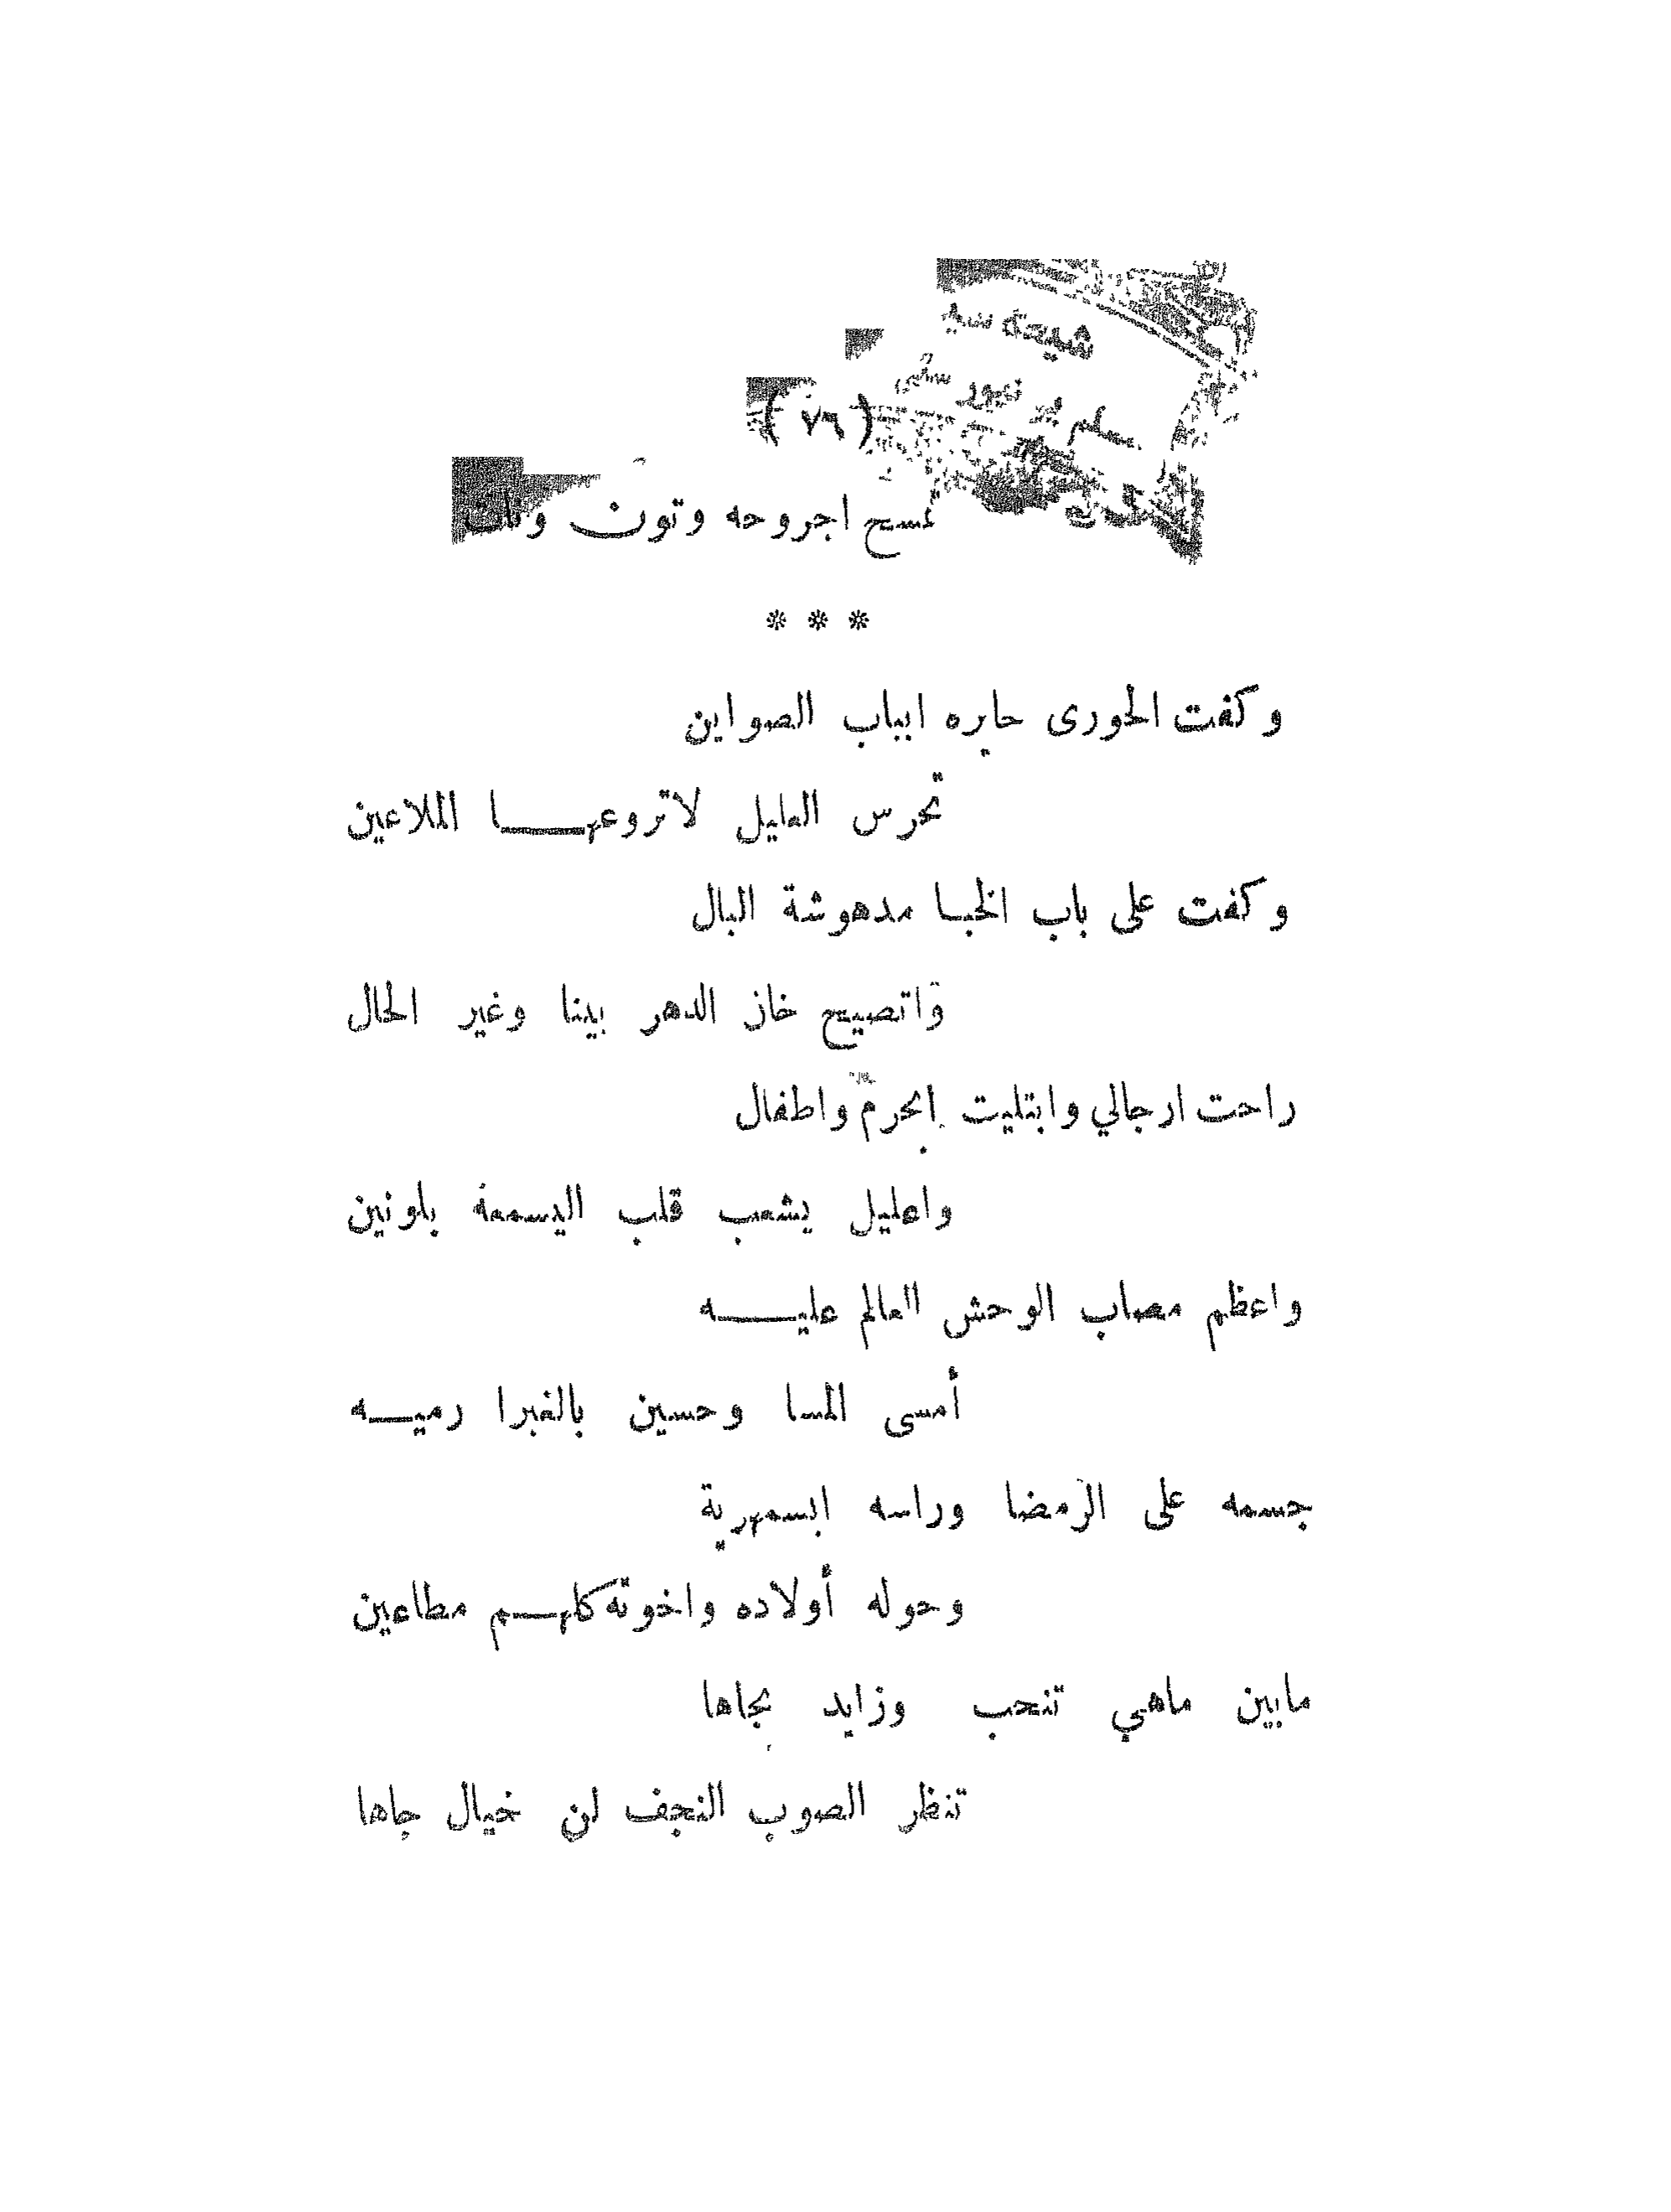 شيحة
( ٧٦ )
تمسح اجروحه وتون ونت
* * *
وكفت الحورى حايره ابباب الصواوين
تحرس العليل لاتروعهـــا الملاعين
وكفت على باب الخبـا مدهوشة البال
واتصيح خان الدهر بينا وغير الحال
راحت ارجالي وابتليت ابحرم واطفال
واعليل يشعب قلب اليسمعه بلونين
واعظم مصاب الوحش العالم عليـــه
أمسى المسا وحسين بالغبرا رميـــه
جسمه على الرمضا وراسه ابسمهرية
وحوله أولاده واخوته كلهـــم مطاعين
مابين ماهي تنحب وزايد بجاها
تنظر الصوب النجف لن خيال جاها